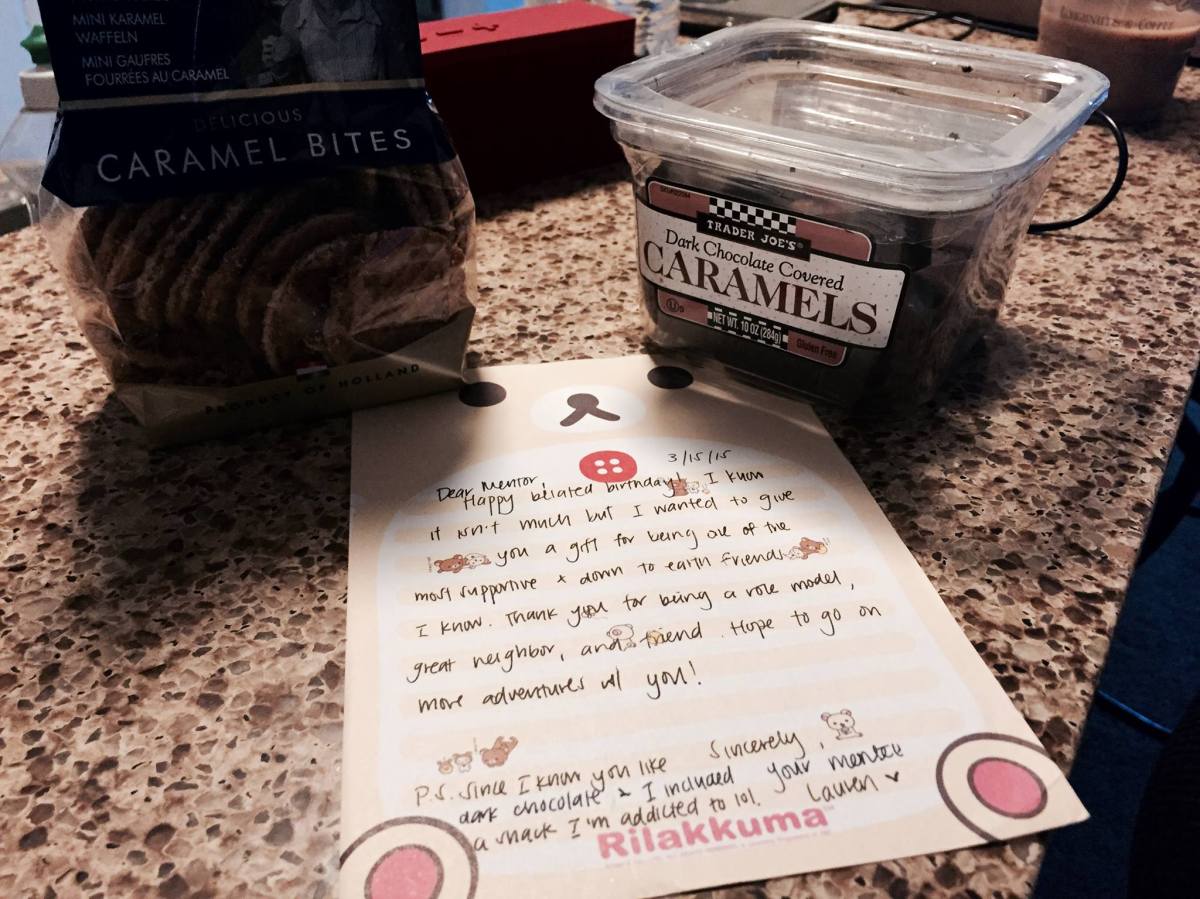 MINI KARAMEL
WAFFELN
MINI GAUFRES
FOURRÉES AU CARAMEL
DELICIOUS
CARAMEL BITES
PRODUCT OF HOLLAND
TRADER JOE'S
Dark Chocolate Covered
CARAMELS
NET WT. 10 OZ (284g)
Gluten Free
3/15/15
Dear Mentor,
Happy belated birthday! I know
it isn't much but I wanted to give
you a gift for being one of the
most supportive + down to earth friends
I know. Thank you for being a role model,
great neighbor, and friend. Hope to go on
more adventures w/ you!
Sincerely,
your mentee
Lauren
P.S. Since I know you like
dark chocolate & I included
a snack I'm addicted to lol.
Rilakkuma